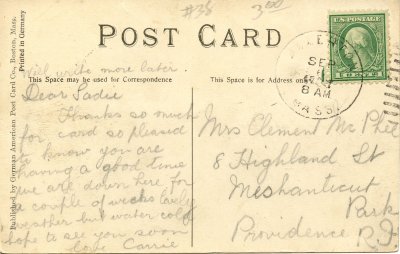 #38
3.00
POST CARD
Will write more later
This Space may be used for Correspondence
This Space is for Address only
Dear Sadie
Thanks so much
for card so pleased
to know you are
having a good time
we are down here for
a couple of weeks lovely
weather but water cold
hope to see you soon
love Carrie
Mrs Clement Mc Phee
8 Highland St
Meshanticut
Park
Providence R.I.
Published by German American Post Card Co., Boston, Mass.
Printed in Germany
U.S. POSTAGE
1 CENT 1
SEP
8 AM
MASS.